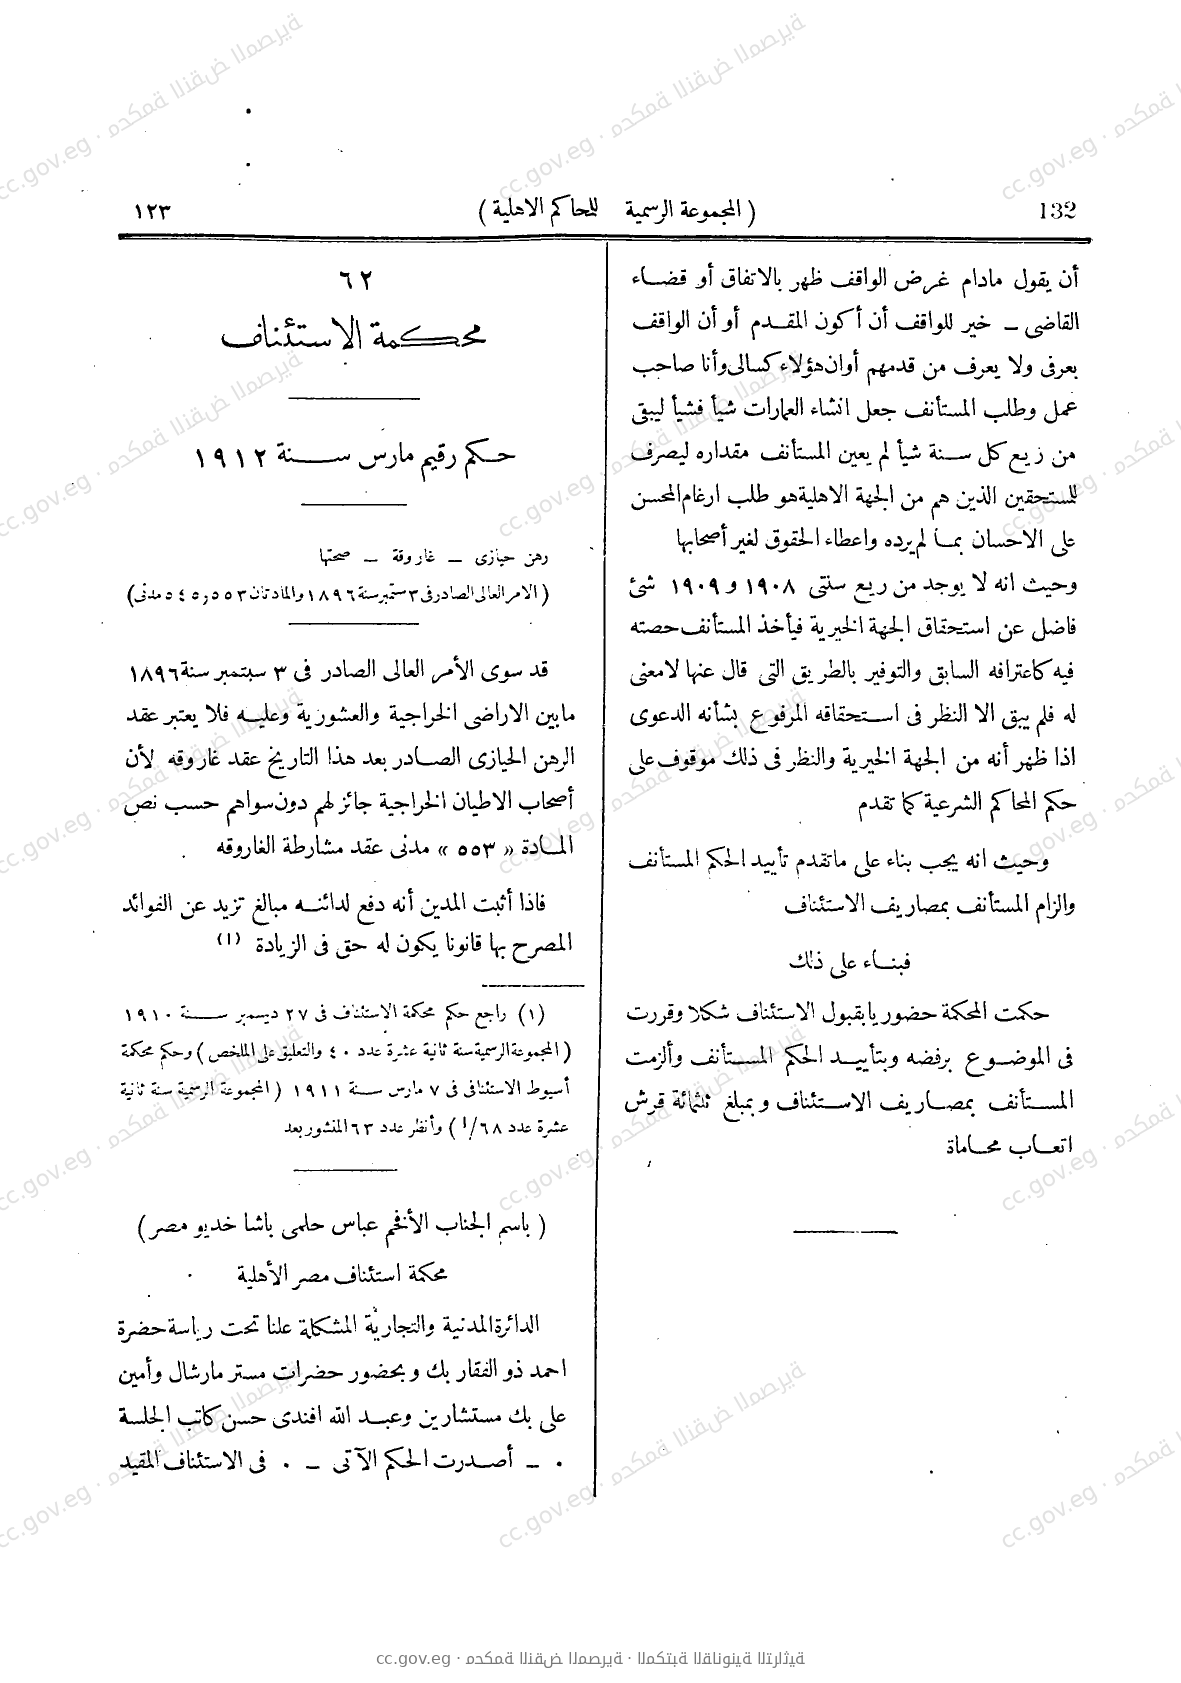 132 ( المجموعة الرسمية للمحاكم الاهلية ) ١٢٣
أن يقول مادام غرض الواقف ظهر بالاتفاق أو قضاء
القاضى ـ خير للواقف أن أكون المقدم أو أن الواقف
يعرفى ولا يعرف من قدمهم أوان هؤلاء كسالى وأنا صاحب
عمل وطلب المستأنف جعل انشاء العمارات شيأ فشيأ ليبقى
من زيع كل سنة شيأ لم يعين المستأنف مقداره ليصرف
للمستحقين الذين هم من الجهة الاهلية هو طلب ارغام المحسن
على الاحسان بما لم يرده واعطاء الحقوق لغير أصحابها
وحيث انه لا يوجد من ريع سنتى ١٩٠٨ و ١٩٠٩ شئ
فاضل عن استحقاق الجهة الخيرية فيأخذ المستأنف حصته
فيه كاعترافه السابق والتوفير بالطريق التى قال عنها لامعنى
له فلم يبق الا النظر فى استحقاقه المرفوع بشأنه الدعوى
اذا ظهر أنه من الجهة الخيرية والنظر فى ذلك موقوف على
حكم المحاكم الشرعية كما تقدم
وحيث انه يجب بناء على ماتقدم تأييد الحكم المستأنف
والزام المستأنف بمصاريف الاستئناف
فبناء على ذلك
حكمت المحكمة حضوريا بقبول الاستئناف شكلا وقررت
فى الموضوع برفضه وبتأييد الحكم المستأنف وألزمت
المستأنف بمصاريف الاستئناف وبمبلغ ثلثمائة قرش
اتعاب محاماة
٦٢
محكمة الاستئناف
حكم رقيم مارس سنة ١٩١٢
رهن حيازى ـ غاروقة ـ صحتها
( الامر العالى الصادر فى ٣ ستمبر سنة ١٨٩٦ والمادتان ٥٥٣ و ٥٤٥ مدنى )
قد سوى الأمر العالى الصادر فى ٣ سبتمبر سنة ١٨٩٦
مابين الاراضى الخراجية والعشورية وعليه فلا يعتبر عقد
الرهن الحيازى الصادر بعد هذا التاريخ عقد غاروقه لأن
أصحاب الاطيان الخراجية جائز لهم دون سواهم حسب نص
المادة « ٥٥٣ » مدنى عقد مشارطة الغاروقه
فاذا أثبت المدين أنه دفع لدائنه مبالغ تزيد عن الفوائد
المصرح بها قانونا يكون له حق فى الزيادة (١)
(١) راجع حكم محكمة الاستئناف فى ٢٧ ديسمبر سنة ١٩١٠
( المجموعة الرسمية سنة ثانية عشرة عدد ٤٠ والتعليق على الملخص ) وحكم محكمة
أسيوط الاستئنافى فى ٧ مارس سنة ١٩١١ ( المجموعة الرسمية سنة ثانية
عشرة عدد ٦٨/١ ) وأنظر عدد ٦٣ المنشور بعد
( باسم الجناب الأفخم عباس حلمى باشا خديو مصر )
محكمة استئناف مصر الأهلية
الدائرة المدنية والتجارية المشكلة علنا تحت رياسة حضرة
احمد ذو الفقار بك وبحضور حضرات مستر مارشال وأمين
على بك مستشارين وعبد الله افندى حسن كاتب الجلسة
٠ ـ أصدرت الحكم الآتى ـ ٠ فى الاستئناف المقيد
cc.gov.eg · محكمة النقض المصرية · المكتبة القانونية التراثية